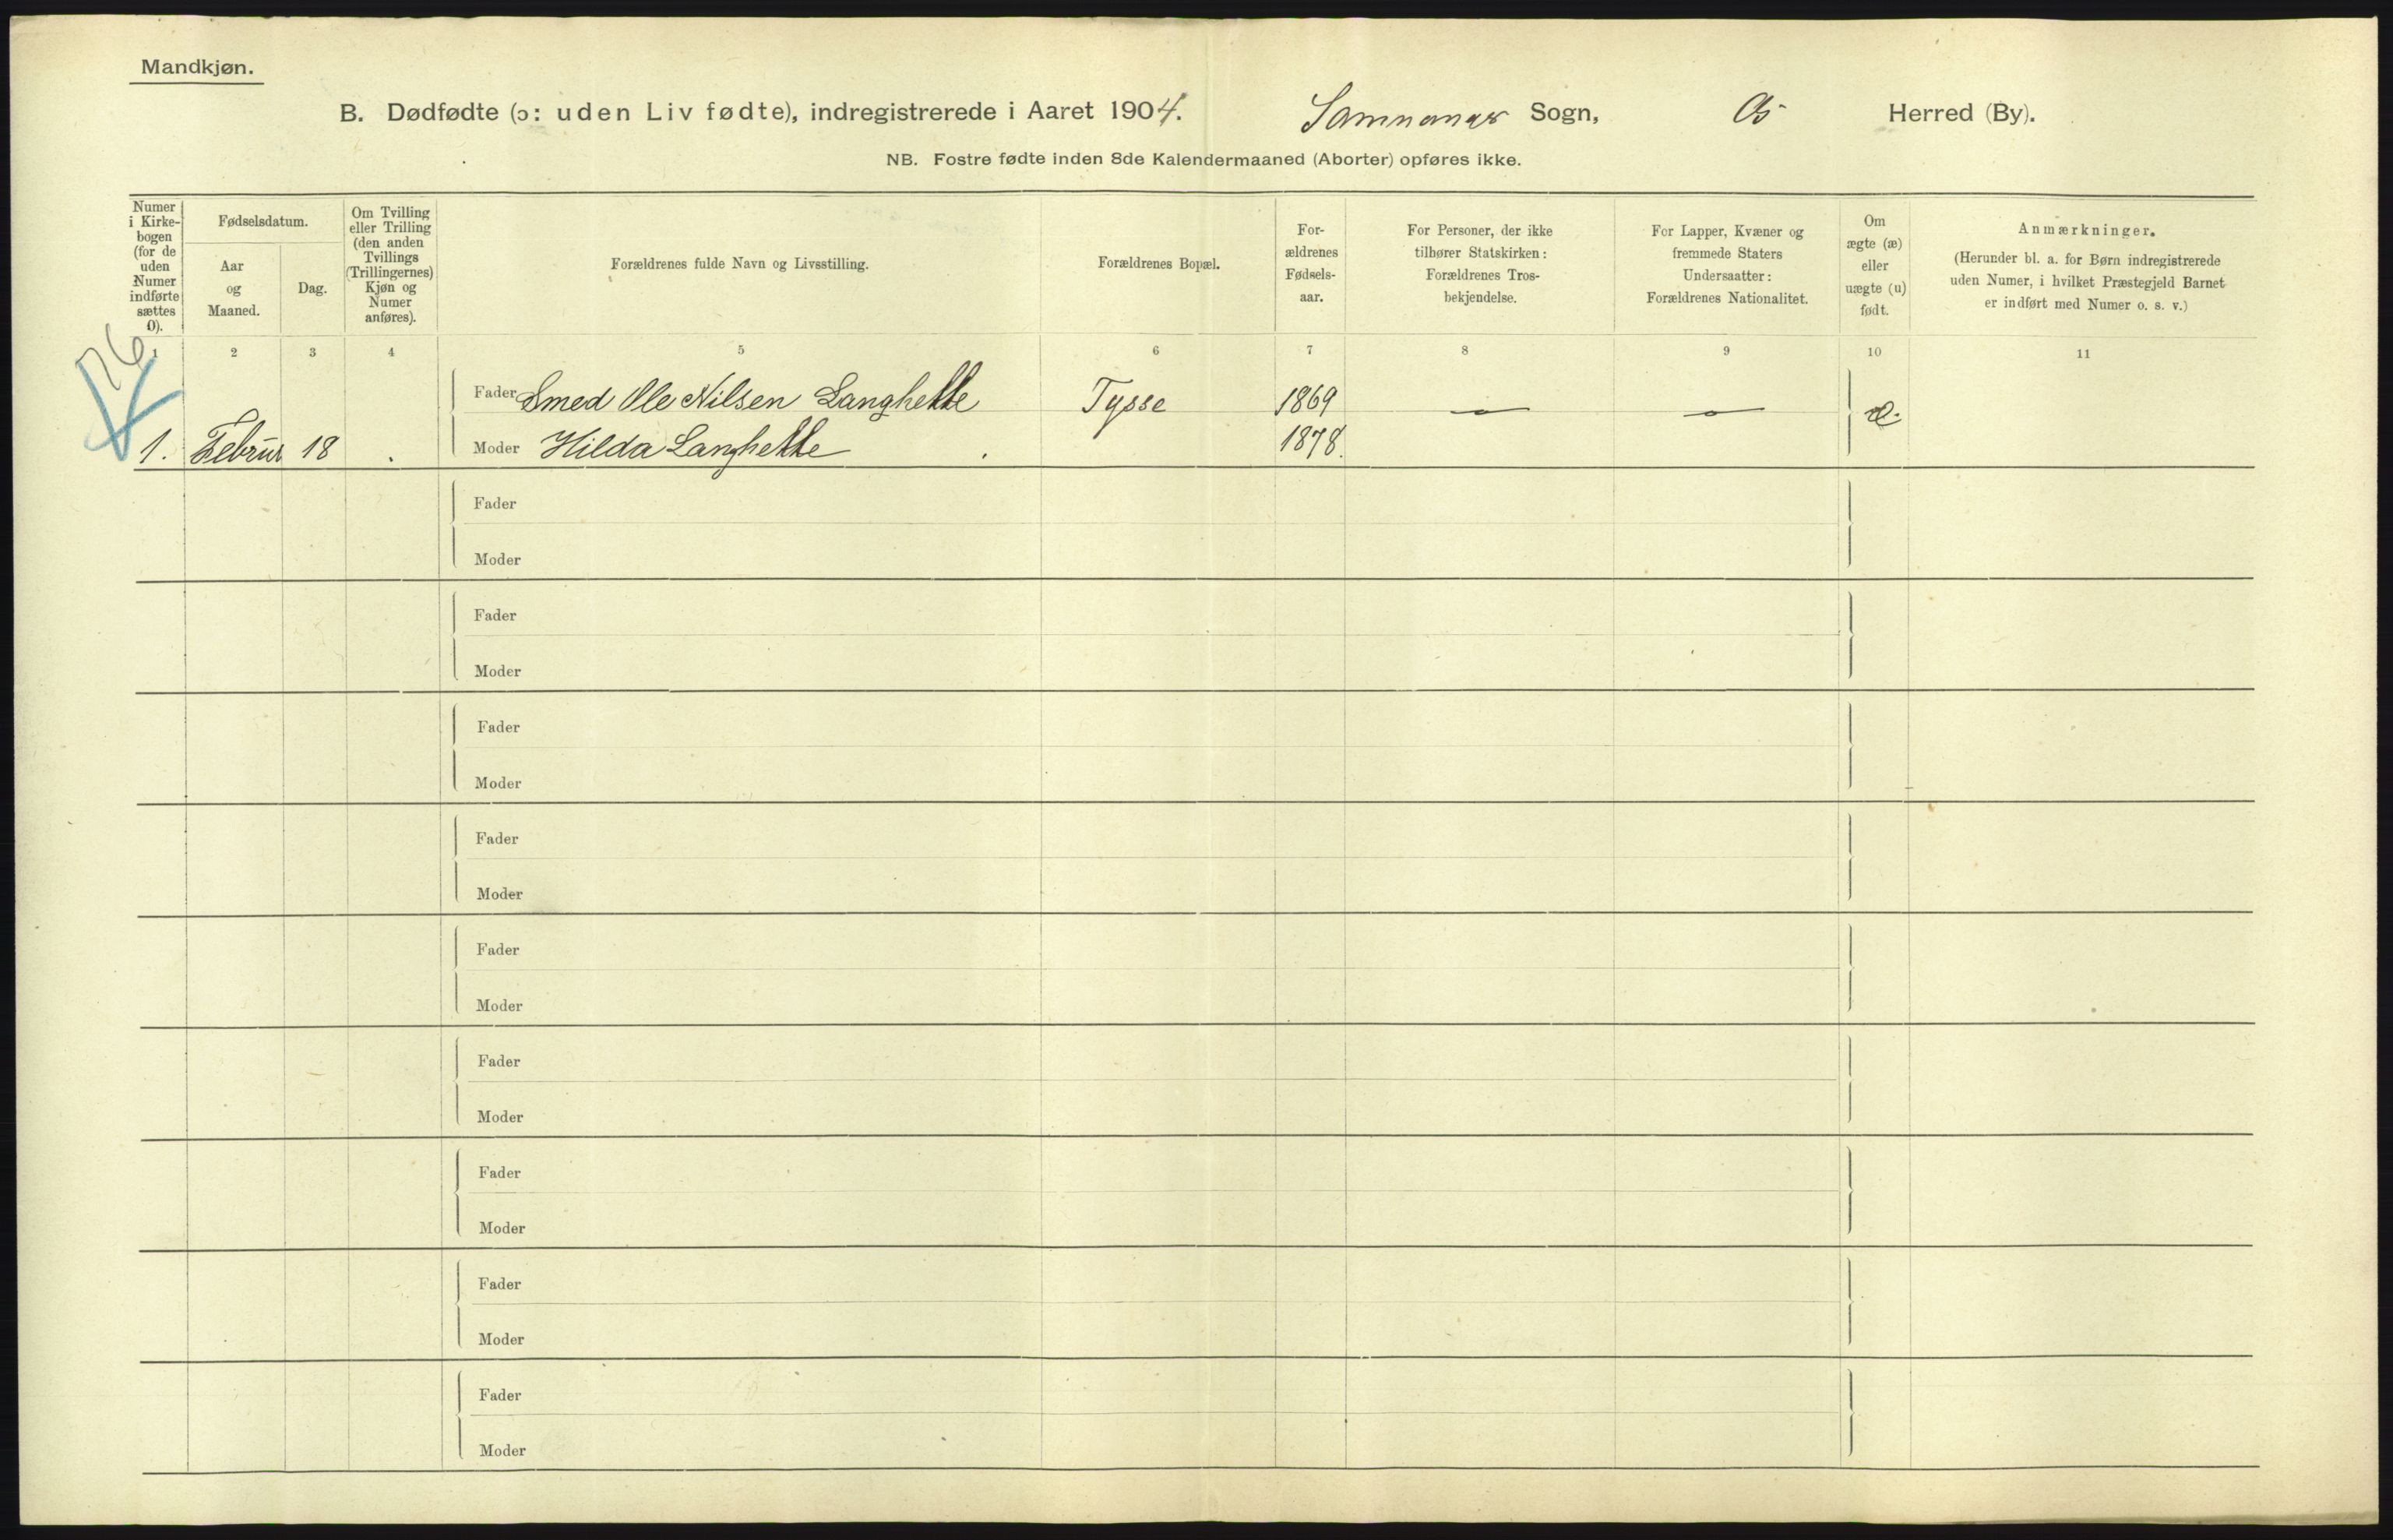 Mandkjøn.
B. Dødfødte (ɔ: uden Liv fødte), indregistrerede i Aaret 1904. Samnanger Sogn, Os Herred (By).
NB. Fostre fødte inden 8de Kalendermaaned (Aborter) opføres ikke.
Numer i Kirke-bogen (for de uden Numer indførte sættes 0).
Fødselsdatum.
Aar og Maaned.
Dag.
Om Tvilling eller Trilling (den anden Tvillings (Trillingernes) Kjøn og Numer anføres).
Forældrenes fulde Navn og Livsstilling.
Forældrenes Bopæl.
For-ældrenes Fødsels-aar.
For Personer, der ikke tilhører Statskirken: Forældrenes Tros-bekjendelse.
For Lapper, Kvæner og fremmede Staters Undersaatter: Forældrenes Nationalitet.
Om ægte (æ) eller uægte (u) født.
Anmærkninger.
(Herunder bl. a. for Børn indregistrerede uden Numer, i hvilket Præstegjeld Barnet er indført med Numer o. s. v.)
1 2 3 4 5 6 7 8 9 10 11
76
Fader Smed Ole Nilsen Langhelle Tysse 1869 — — æ.
1. Februr 18 . Moder Hilda Langhelle 1878.
Fader
Moder
Fader
Moder
Fader
Moder
Fader
Moder
Fader
Moder
Fader
Moder
Fader
Moder
Fader
Moder
Fader
Moder